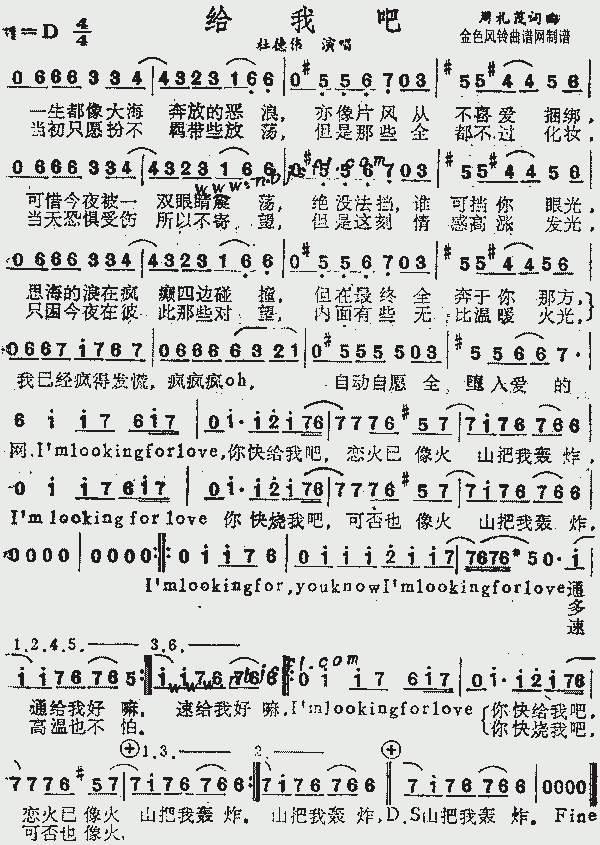 给 我 吧
1=D 4/4
周礼茂词曲
杜德伟 演唱
金色风铃曲谱网制谱
0 6 6 6 3 3 4 | 4 3 2 3 1 6 6 | 0 #5 5 6 7 0 3 | #5 5 #4 4 5 6
一生都像大海 奔放的恶 浪, 亦像片风 从 不喜 爱 捆绑,
当初只愿扮不 羁带些放 荡, 但是那些 全 都不 过 化妆,
0 6 6 6 3 3 4 | 4 3 2 3 1 6 6 | 0 #5 5 6 7 0 3 | #5 5 #4 4 5 6
可惜今夜被一 双眼睛 荡, 绝没法挡, 谁 可挡 你 眼光,
当天恐惧受伤 所以不寄 望, 但是这刻 情 感高 涨 发光,
0 6 6 6 3 3 4 | 4 3 2 3 1 6 6 | 0 #5 5 6 7 0 3 | #5 5 #4 4 5 6
思海的浪在疯 癫四边碰 撞, 但在最终 全 奔于 你 那方,
只因今夜在彼 此那些对 望, 内面有些 无 比温 暖 火光,
0 6 6 7 i 7 6 7 | 0 6 6 6 6 3 2 1 | 0 #5 5 5 5 0 3 | #5 5 6 6 7 ·
我已经疯得发慌, 疯疯疯oh, 自动自愿 全 堕入爱 的
6 i i 7 6 i 7 | 0 i · i 2 i 7 6 | 7 7 7 6 #5 7 | 7 i 7 6 7 6 6
网.I'mlookingforlove,你快给我吧, 恋火已 像火 山把我轰 炸,
0 i i 7 6 i 7 | 0 i · i 2 i 7 6 | 7 7 7 6 #5 7 | 7 i 7 6 7 6 6
I'm looking for love 你 快烧我吧, 可否也 像火 山把我轰 炸.
0 0 0 0 | 0 0 0 0 :‖: 0 i i 7 6 | 0 i i i 2 i i 7 | 7 6 7 6 #5 0 · i
I'mlookingfor,youknowI'mlookingforlove通
多
速
1,2,4,5. 3,6.
i i 7 6 7 6 5 :‖ i i 7 6 7 6 6 :‖: 0 i i 7 6 i 7 | 0 i · i 2 i 7 6
通给我好 嘛, 速给我好 嘛,I'mlookingforlove 你快给我吧,
高温也不 怕. 你快烧我吧,
1,3. 2.
7 7 7 6 #5 7 | 7 i 7 6 7 6 6 :‖ 7 i 7 6 7 6 6 ‖ 7 i 7 6 7 6 6 | 0 0 0 0 ‖
恋火已 像火 山把我轰 炸. 山把我轰 炸,D.S山把我轰 炸. Fine
可否也 像火,